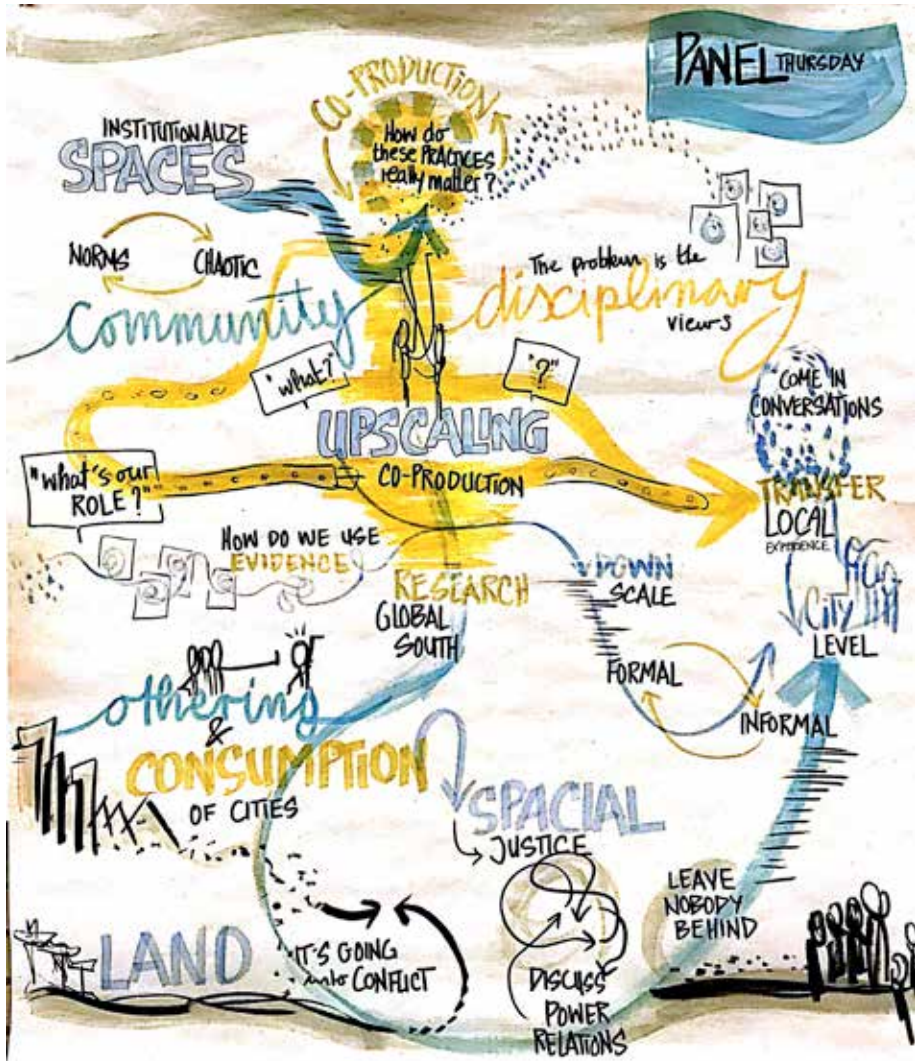 PANEL THURSDAY
CO-PRODUCTION
How do
these PRACTICES
really matter?
INSTITUTIONALIZE
SPACES
NORMS
CHAOTIC
community
The problem is the
disciplinary
views
"what?"
"?"
UPSCALING
CO-PRODUCTION
COME IN
CONVERSATIONS
TRANSFER
LOCAL
EXPERIENCE
CITY
LEVEL
"what's our
ROLE?"
HOW DO WE USE
EVIDENCE
RESEARCH
GLOBAL
SOUTH
DOWN
SCALE
FORMAL
INFORMAL
othering
&
CONSUMPTION
OF CITIES
SPACIAL
JUSTICE
LEAVE
NOBODY
BEHIND
LAND
IT'S GOING
into CONFLICT
DISCUSS
POWER
RELATIONS